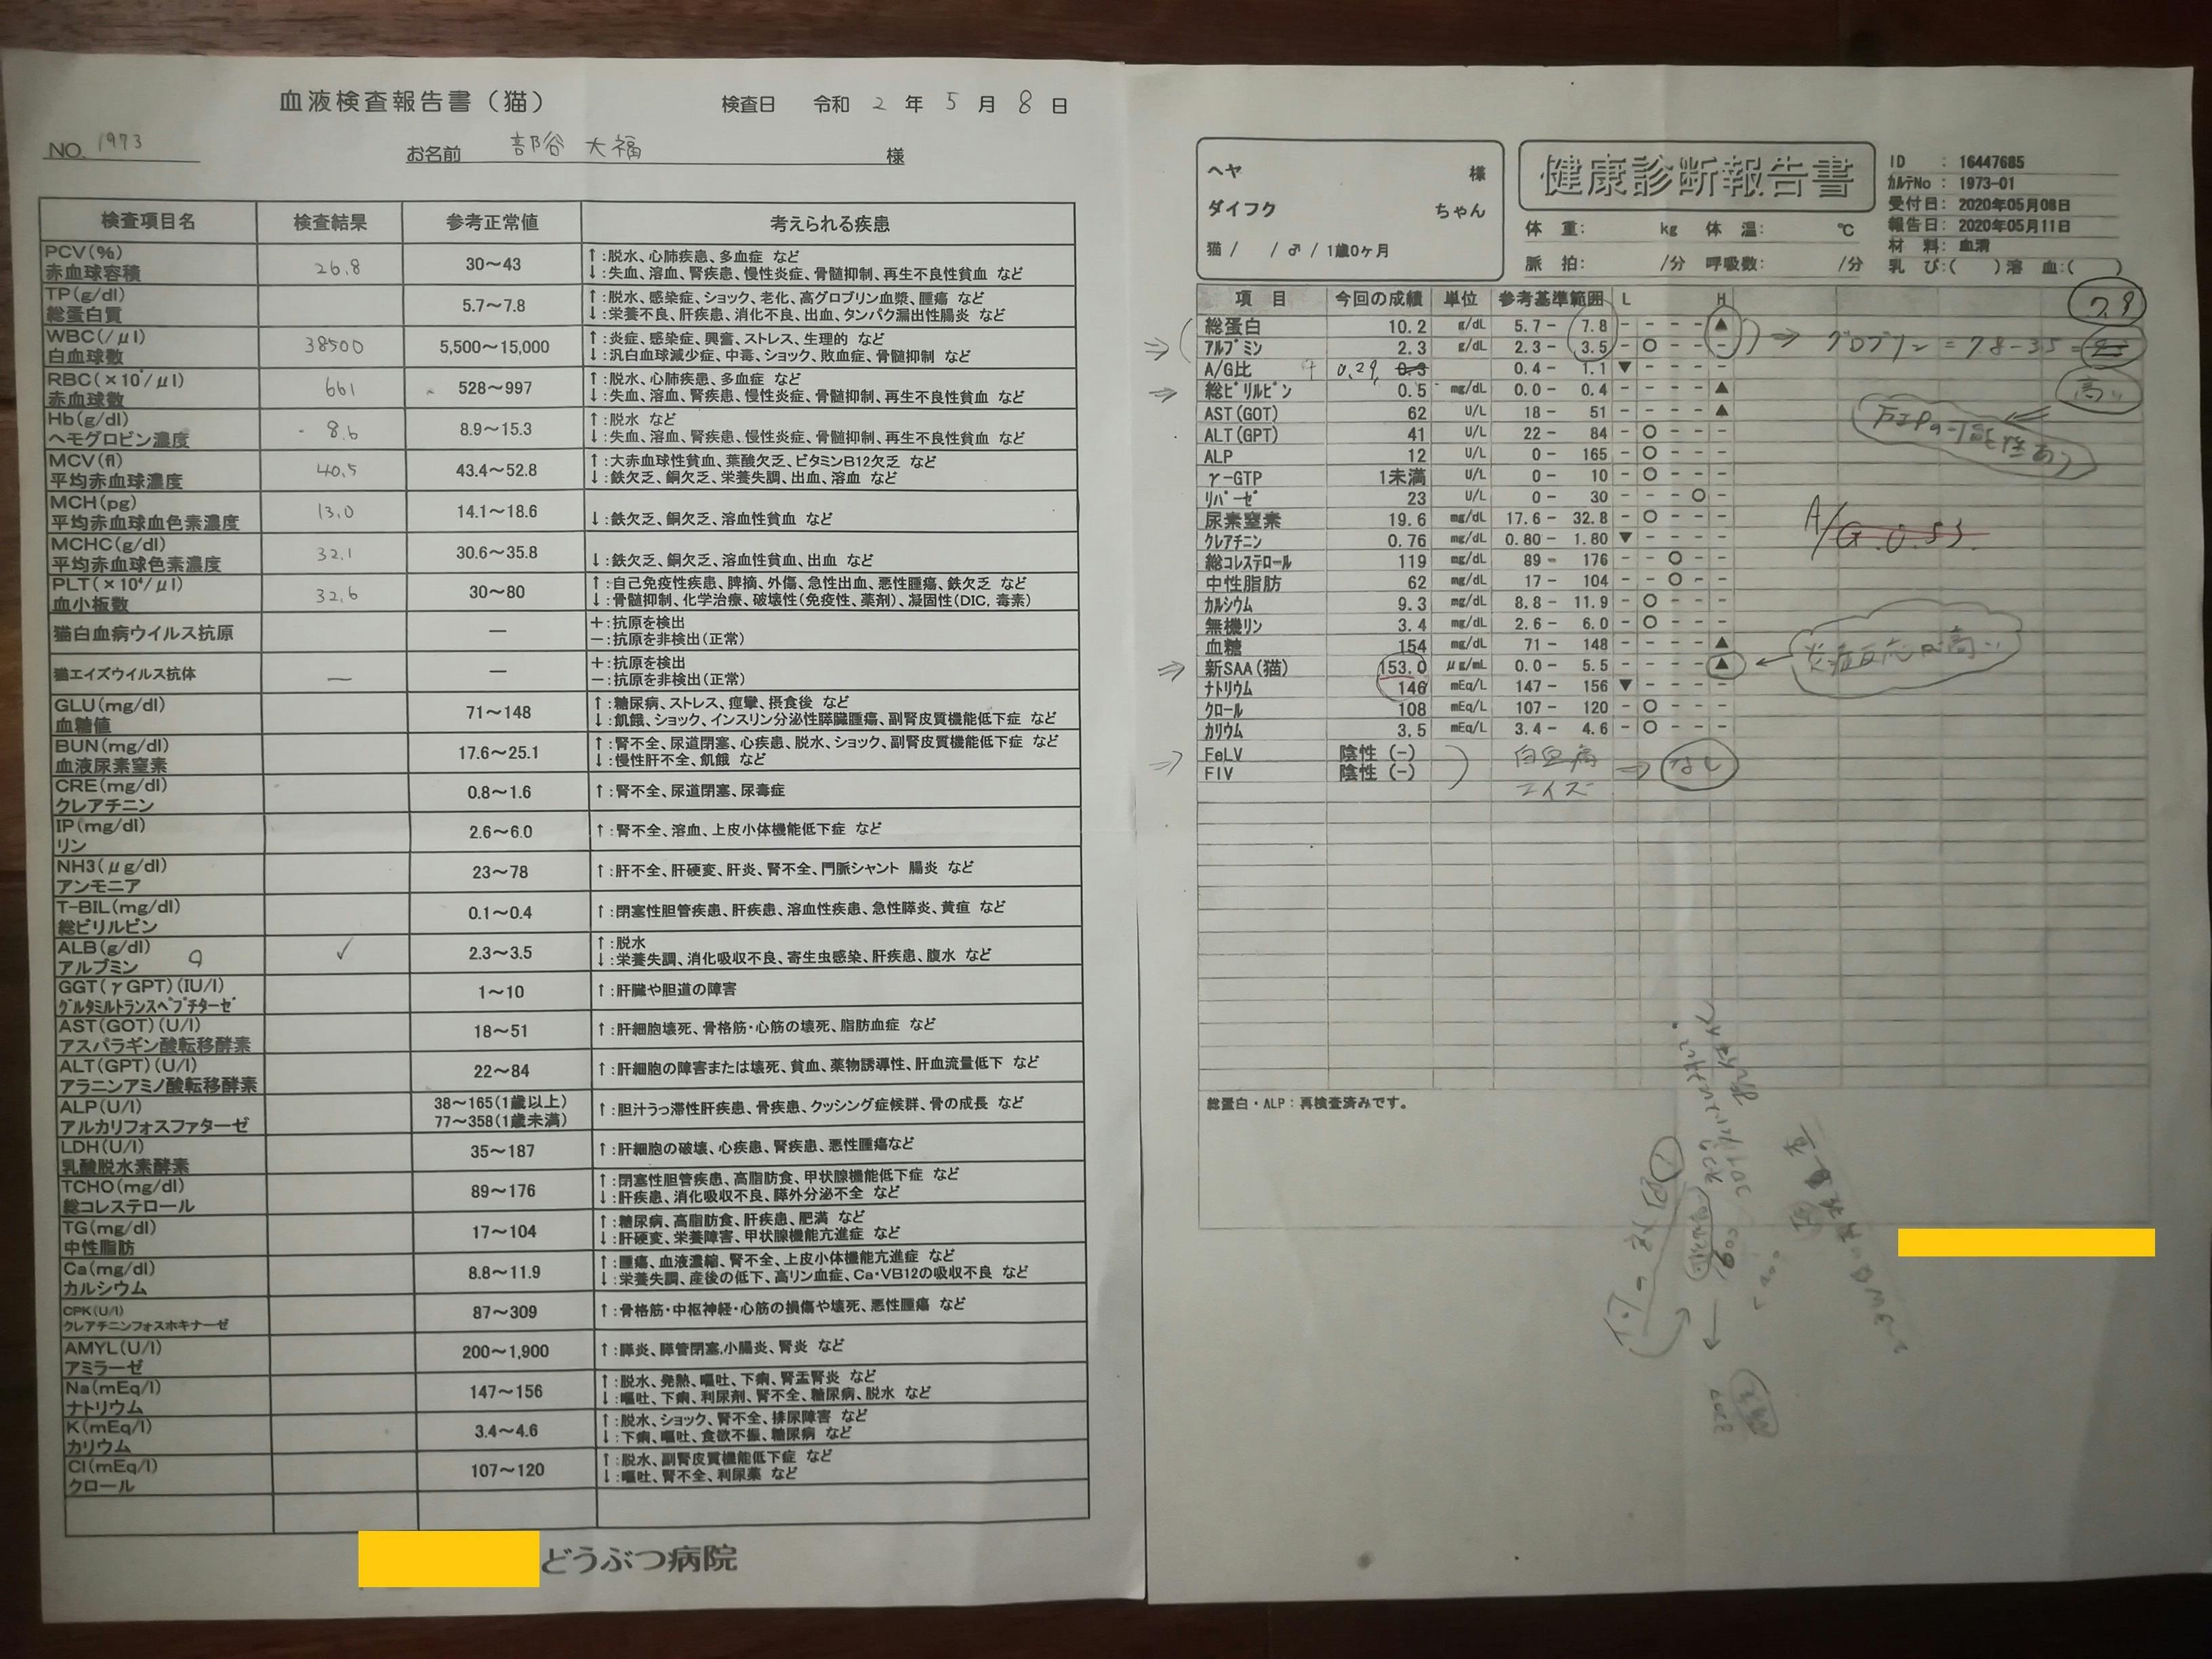 血液検査報告書（猫）
検査日 令和 2 年 5 月 8 日
NO. 1973
お名前 部谷 大福 様
検査項目名 検査結果 参考正常値 考えられる疾患
PCV(%) 赤血球容積 26.8 30～43
↑:脱水、心肺疾患、多血症 など
↓:失血、溶血、腎疾患、慢性炎症、骨髄抑制、再生不良性貧血 など
TP(g/dl) 総蛋白質 5.7～7.8
↑:脱水、感染症、ショック、老化、高グロブリン血漿、腫瘍 など
↓:栄養不良、肝疾患、消化不良、出血、タンパク漏出性腸炎 など
WBC(/μl) 白血球数 38500 5,500～15,000
↑:炎症、感染症、興奮、ストレス、生理的 など
↓:汎白血球減少症、中毒、ショック、敗血症、骨髄抑制 など
RBC(×10⁴/μl) 赤血球数 661 528～997
↑:脱水、心肺疾患、多血症 など
↓:失血、溶血、腎疾患、慢性炎症、骨髄抑制、再生不良性貧血 など
Hb(g/dl) ヘモグロビン濃度 8.6 8.9～15.3
↑:脱水 など
↓:失血、溶血、腎疾患、慢性炎症、骨髄抑制、再生不良性貧血 など
MCV(fl) 平均赤血球濃度 40.5 43.4～52.8
↑:大赤血球性貧血、葉酸欠乏、ビタミンB12欠乏 など
↓:鉄欠乏、銅欠乏、栄養失調、出血、溶血 など
MCH(pg) 平均赤血球血色素濃度 13.0 14.1～18.6
↓:鉄欠乏、銅欠乏、溶血性貧血 など
MCHC(g/dl) 平均赤血球色素濃度 32.1 30.6～35.8
↓:鉄欠乏、銅欠乏、溶血性貧血、出血 など
PLT(×10⁴/μl) 血小板数 32.6 30～80
↑:自己免疫性疾患、脾摘、外傷、急性出血、悪性腫瘍、鉄欠乏 など
↓:骨髄抑制、化学治療、破壊性(免疫性、薬剤)、凝固性(DIC, 毒素)
猫白血病ウイルス抗原 －
＋:抗原を検出
－:抗原を非検出(正常)
猫エイズウイルス抗体 － －
＋:抗原を検出
－:抗原を非検出(正常)
GLU(mg/dl) 血糖値 71～148
↑:糖尿病、ストレス、痙攣、摂食後 など
↓:飢餓、ショック、インスリン分泌性膵臓腫瘍、副腎皮質機能低下症 など
BUN(mg/dl) 血液尿素窒素 17.6～25.1
↑:腎不全、尿道閉塞、心疾患、脱水、ショック、副腎皮質機能低下症 など
↓:慢性肝不全、飢餓 など
CRE(mg/dl) クレアチニン 0.8～1.6
↑:腎不全、尿道閉塞、尿毒症
IP(mg/dl) リン 2.6～6.0
↑:腎不全、溶血、上皮小体機能低下症 など
NH3(μg/dl) アンモニア 23～78
↑:肝不全、肝硬変、肝炎、腎不全、門脈シャント 腸炎 など
T-BIL(mg/dl) 総ビリルビン 0.1～0.4
↑:閉塞性胆管疾患、肝疾患、溶血性疾患、急性膵炎、黄疸 など
ALB(g/dl) アルブミン ✓ 2.3～3.5
↑:脱水
↓:栄養失調、消化吸収不良、寄生虫感染、肝疾患、腹水 など
GGT(γGPT)(IU/l) グルタミルトランスペプチターゼ 1～10
↑:肝臓や胆道の障害
AST(GOT)(U/l) アスパラギン酸転移酵素 18～51
↑:肝細胞壊死、骨格筋・心筋の壊死、脂肪血症 など
ALT(GPT)(U/l) アラニンアミノ酸転移酵素 22～84
↑:肝細胞の障害または壊死、貧血、薬物誘導性、肝血流量低下 など
ALP(U/l) アルカリフォスファターゼ 38～165(1歳以上) 77～358(1歳未満)
↑:胆汁うっ滞性肝疾患、骨疾患、クッシング症候群、骨の成長 など
LDH(U/l) 乳酸脱水素酵素 35～187
↑:肝細胞の破壊、心疾患、腎疾患、悪性腫瘍など
TCHO(mg/dl) 総コレステロール 89～176
↑:閉塞性胆管疾患、高脂肪食、甲状腺機能低下症 など
↓:肝疾患、消化吸収不良、膵外分泌不全 など
TG(mg/dl) 中性脂肪 17～104
↑:糖尿病、高脂肪食、肝疾患、肥満 など
↓:肝硬変、栄養障害、甲状腺機能亢進症 など
Ca(mg/dl) カルシウム 8.8～11.9
↑:腫瘍、血液濃縮、腎不全、上皮小体機能亢進症 など
↓:栄養失調、産後の低下、高リン血症、Ca・VB12の吸収不良 など
CPK(U/l) クレアチニンフォスホキナーゼ 87～309
↑:骨格筋・中枢神経・心筋の損傷や壊死、悪性腫瘍 など
AMYL(U/l) アミラーゼ 200～1,900
↑:膵炎、膵管閉塞,小腸炎、腎炎 など
Na(mEq/l) ナトリウム 147～156
↑:脱水、発熱、嘔吐、下痢、腎盂腎炎 など
↓:嘔吐、下痢、利尿剤、腎不全、糖尿病、脱水 など
K(mEq/l) カリウム 3.4～4.6
↑:脱水、ショック、腎不全、排尿障害 など
↓:下痢、嘔吐、食欲不振、糖尿病 など
Cl(mEq/l) クロール 107～120
↑:脱水、副腎皮質機能低下症 など
↓:嘔吐、腎不全、利尿薬 など
どうぶつ病院
ヘヤ 様
ダイフク ちゃん
猫 / / ♂ / 1歳0ヶ月
健康診断報告書
体 重: kg 体 温: ℃
脈 拍: /分 呼吸数: /分
ID : 16447685
カルテNo : 1973-01
受付日: 2020年05月08日
報告日: 2020年05月11日
材 料: 血清
乳 び:( ) 溶 血:( )
項 目 今回の成績 単位 参考基準範囲 L H
7.9
総蛋白 10.2 g/dL 5.7 - 7.8 - - - - ▲
アルブミン 2.3 g/dL 2.3 - 3.5 - ○ - - -
⇒ グロブリン = 7.8-3.5 =
A/G比 0.29 0.3 0.4 - 1.1 ▼ - - - -
総ビリルビン 0.5 mg/dL 0.0 - 0.4 - - - - ▲
高い
AST(GOT) 62 U/L 18 - 51 - - - - ▲
FIPの可能性あり
ALT(GPT) 41 U/L 22 - 84 - ○ - - -
ALP 12 U/L 0 - 165 - ○ - - -
γ-GTP 1未満 U/L 0 - 10 - ○ - - -
リパーゼ 23 U/L 0 - 30 - - - ○ -
尿素窒素 19.6 mg/dL 17.6 - 32.8 - ○ - - -
A/G.0.53.
クレアチニン 0.76 mg/dL 0.80 - 1.80 ▼ - - - -
総コレステロール 119 mg/dL 89 - 176 - - ○ - -
中性脂肪 62 mg/dL 17 - 104 - - ○ - -
カルシウム 9.3 mg/dL 8.8 - 11.9 - ○ - - -
無機リン 3.4 mg/dL 2.6 - 6.0 - ○ - - -
血糖 154 mg/dL 71 - 148 - - - - ▲
新SAA(猫) 153.0 μg/mL 0.0 - 5.5 - - - - ▲
← 炎症反応が高い
ナトリウム 146 mEq/L 147 - 156 ▼ - - - -
クロール 108 mEq/L 107 - 120 - ○ - - -
カリウム 3.5 mEq/L 3.4 - 4.6 - ○ - - -
FeLV 陰性 (-) 白血病
FIV 陰性 (-) エイズ
⇒ なし
総蛋白・ALP：再検査済みです。